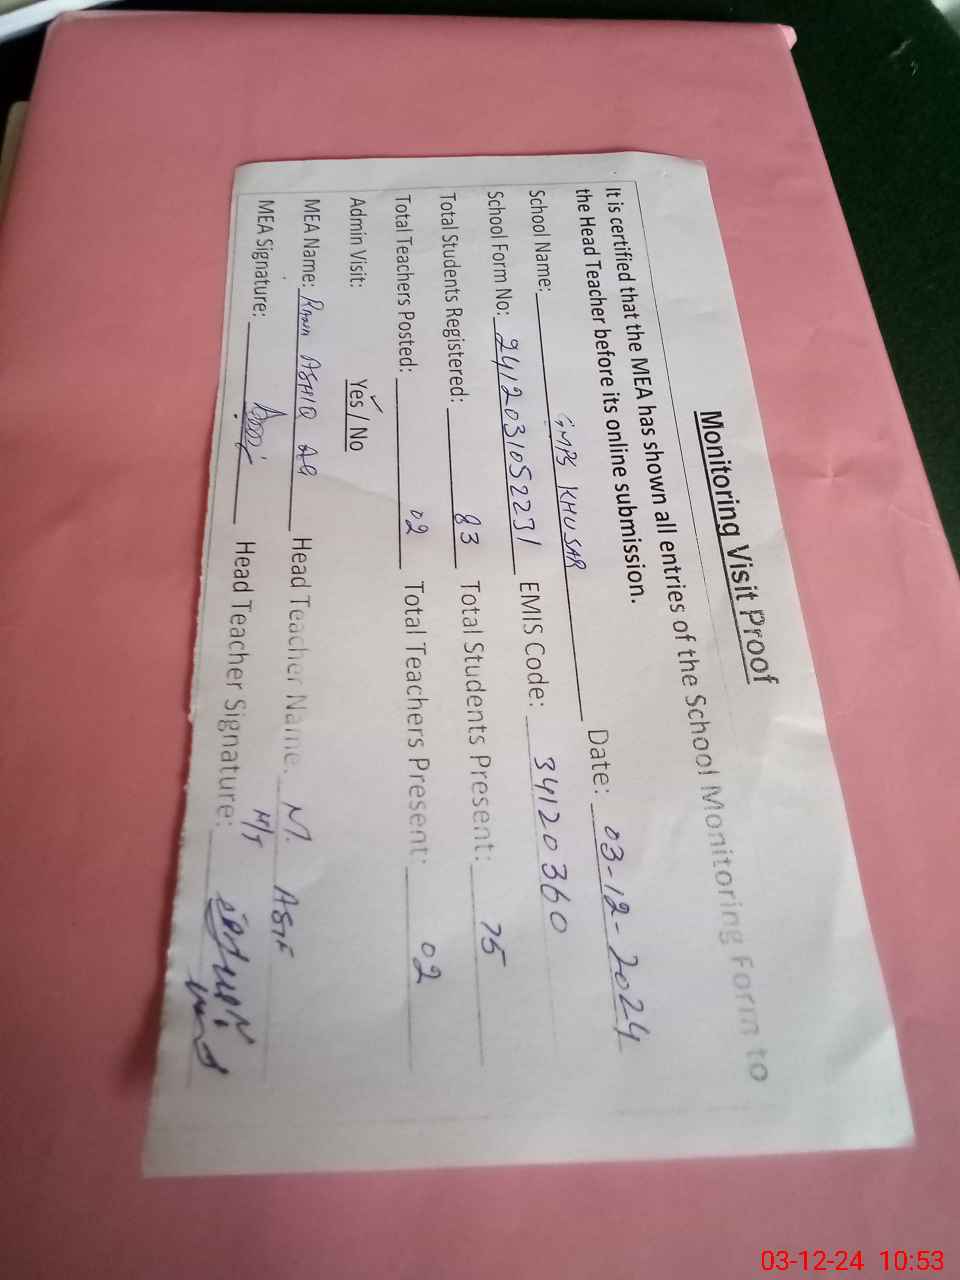 Monitoring Visit Proof
It is certified that the MEA has shown all entries of the School Monitoring Form to
the Head Teacher before its online submission.
School Name: GMPS KHUSAR Date: 03-12-2024
School Form No: 2412031052231 EMIS Code: 34120360
Total Students Registered: 83 Total Students Present: 75
Total Teachers Posted: 02 Total Teachers Present: 02
Admin Visit: Yes / No
MEA Name: ASHIQ Head Teacher Name: M. ASIF
MEA Signature: Head Teacher Signature:
03-12-24 10:53